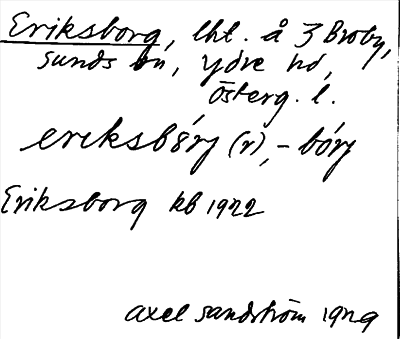 Eriksborg, lht. å 3 Broby,
Sunds sn, Ydre hd,
Österg. l.
eriksbórj (r), -bórj
Eriksborg kb 1922
Axel Sandström 1929